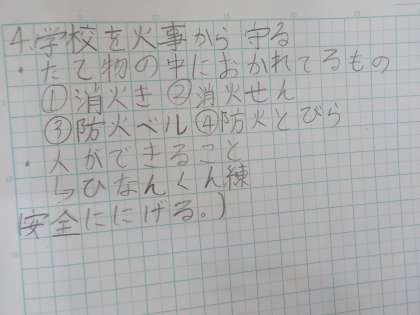 4.学校を火事から守る
・たて物の中におかれてるもの
①消火き ②消火せん
③防火ベル④防火とびら
・人ができること
↳ひなんくん練
(安全ににげる。)